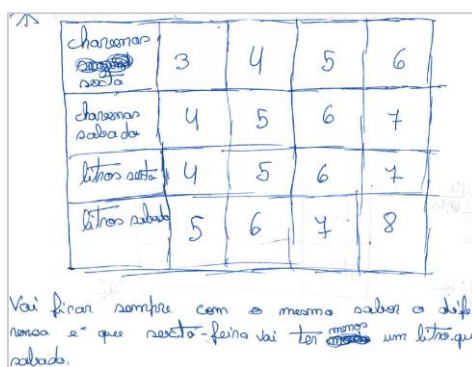 charemas sexta 3 4 5 6
charemas sabado 4 5 6 7
litros sexta 4 5 6 7
litros sabado 5 6 7 8
Vai ficar sempre com o mesmo sabor a dife
rensa e que sexta-feira vai ter menos um litro que
sabado.